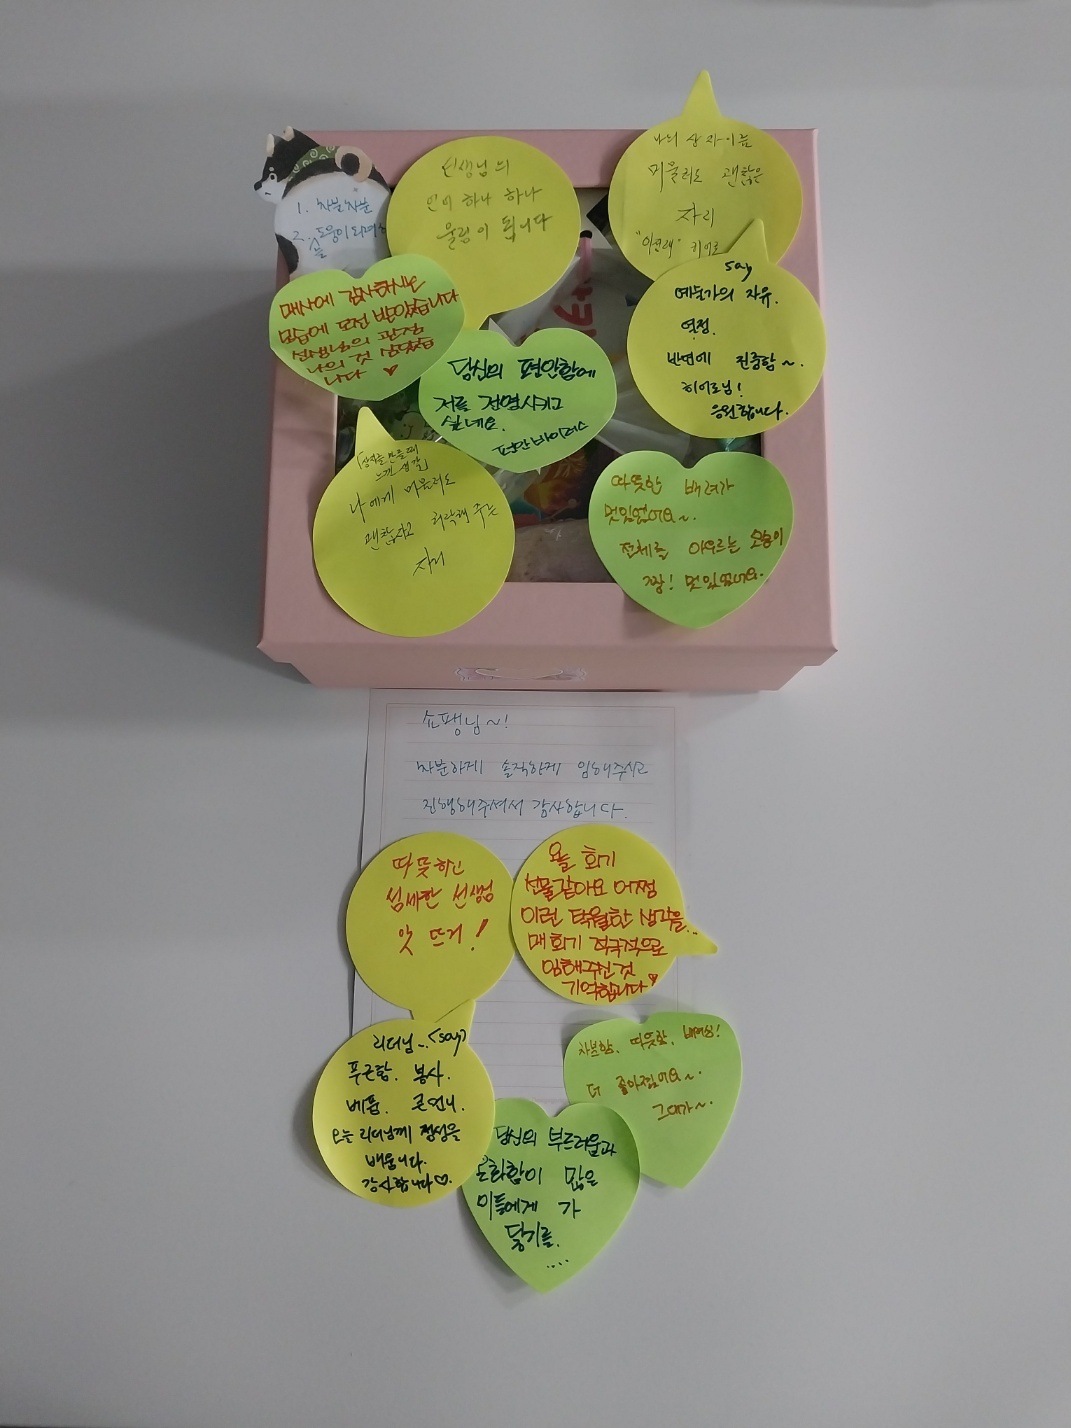 1. 차분차분
2. 도움이 되려는
선생님의
언어 하나 하나
울림이 됩니다
나의 상자이름
머물러도 괜찮은
자리
매사에 감사하시는
모습에 도전 받았습니다
선생님의 긍정
나의 것 삼겠습
니다
당신의 편안함에
저를 전염시키고
싶네요.
편안 바이러스
say
예술가의 자유.
열정.
반면에 진중함~.
히어로님!
응원합니다.
(상자를 만들 때
느낀 생각)
나에게 머물러도
괜찮다고 허락해 주는
자리
따뜻한 배려가
멋있었어요~.
전체를 아우르는 소통이
짱! 멋있었어요.
쇼팽님~!
차분하게 솔직하게 임해주시고
진행해주셔서 감사합니다.
따뜻하고
섬세한 선생님
앗 뜨거!
오늘 회기
선물같아요 어쩜
이런 탁월한 생각을..
매회기 적극적으로
임해주신것
기억합니다
리더님~.<say>
푸근함. 봉사.
베품. 큰언니.
오늘 리더님께 정성을
배웁니다.
감사합니다♡.
차분함. 따뜻함. 배려심!
더 좋아졌어요~.
그대가~.
당신의 부드러움과
온화함이 많은
이들에게 가
닿기를.
....